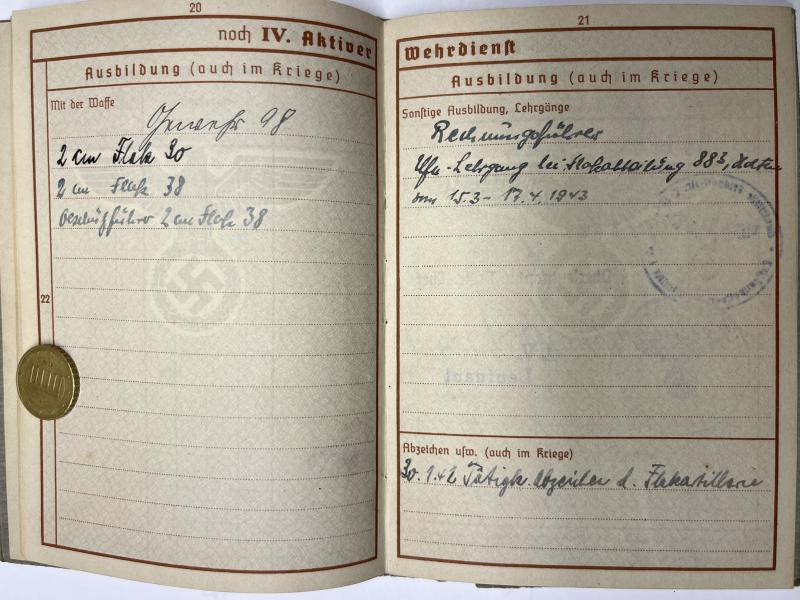 20
noch IV. Aktiver
Ausbildung (auch im Kriege)
Mit der Waffe
Gewehr 98
2 cm Flak 30
2 cm Flak 38
Geschützführer 2 cm Flak 38
22
21
Wehrdienst
Ausbildung (auch im Kriege)
Sonstige Ausbildung, Lehrgänge
Rechnungsführer
Uffz.-Lehrgang bei Flakabteilung 883,
vom 15.3 - 17.4.1943
Abzeichen usw. (auch im Kriege)
30.1.42 Tätigk. Abzeichen d. Flakartillerie